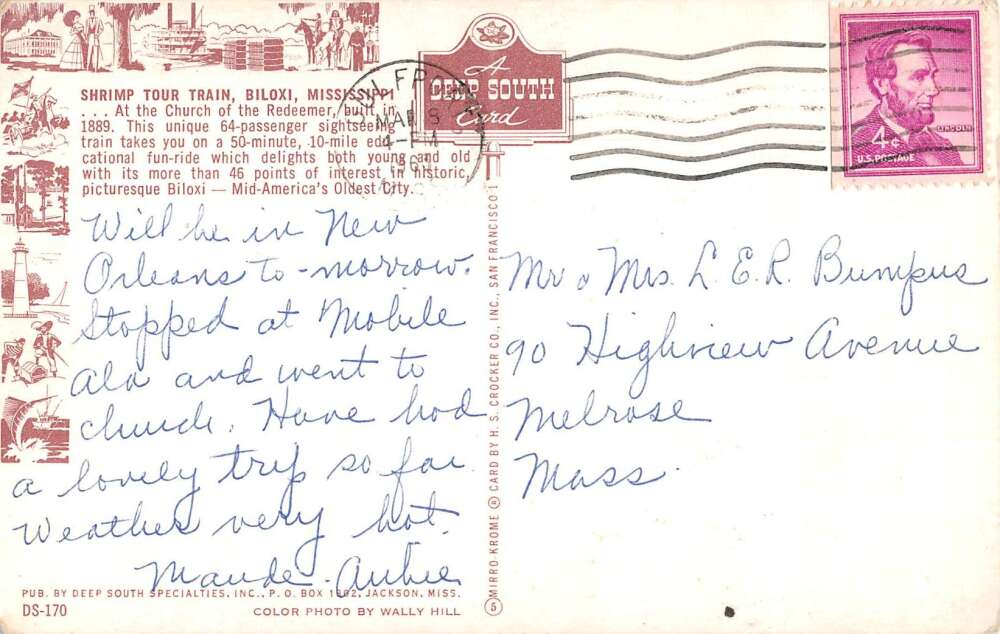 A
DEEP SOUTH
Card
SHRIMP TOUR TRAIN, BILOXI, MISSISSIPPI
. . . At the Church of the Redeemer, built in
1889. This unique 64-passenger sightseeing
train takes you on a 50-minute, 10-mile edu-
cational fun-ride which delights both young and old
with its more than 46 points of interest in historic,
picturesque Biloxi — Mid-America's Oldest City.
Will be in New
Orleans to-morrow.
Stopped at Mobile
Ala and went to
church. Have had
a lovely trip so far.
Weather very hot.
Maude - Aubie
PUB. BY DEEP SOUTH SPECIALTIES, INC., P. O. BOX 1902, JACKSON, MISS.
DS-170
COLOR PHOTO BY WALLY HILL
MIRRO-KROME ® CARD BY H. S. CROCKER CO., INC., SAN FRANCISCO 1
5
4¢
LINCOLN
U.S. POSTAGE
Mr & Mrs. L. E. R. Bumpus
90 Highview Avenue
Melrose
Mass.